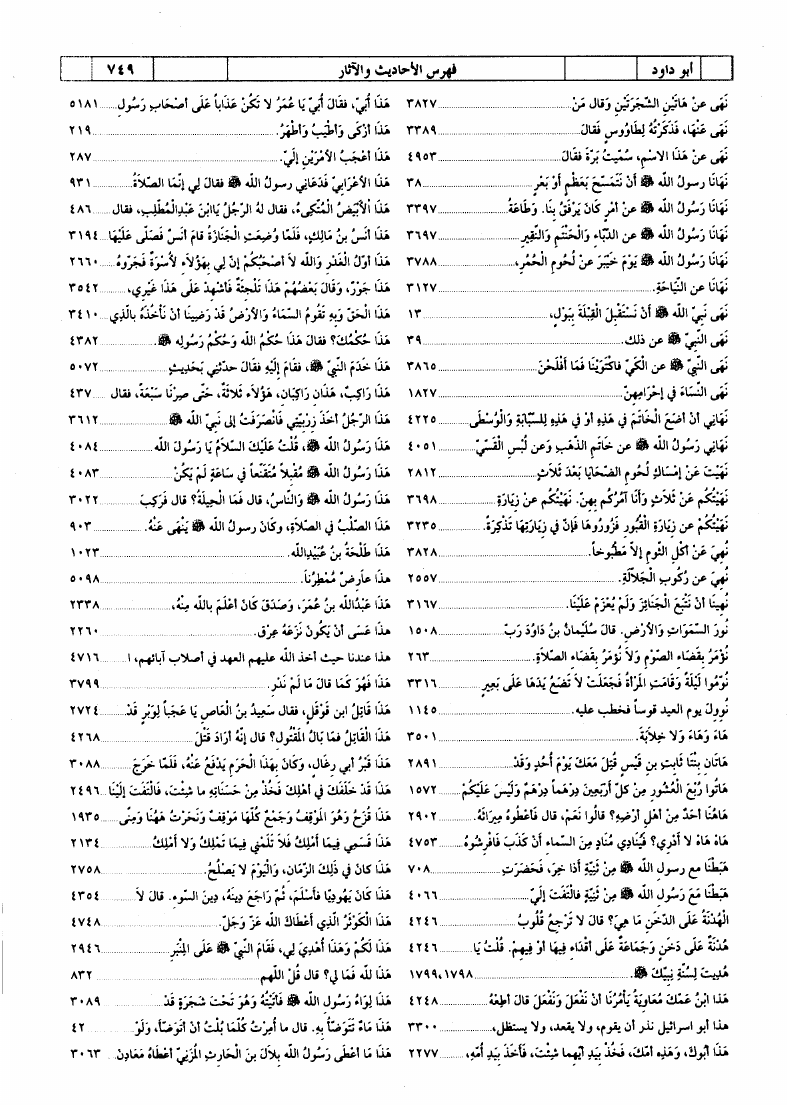 أبو داود
فهرس الأحاديث والآثار
٧٤٩
نَهَى عنْ هَاتَيْنِ الشَّجَرَتَيْنِ وَقال مَنْ ٣٨٢٧
نَهَى عَنْهَا، فَذَكَرْتُهُ لِطَاوُوسٍ فَقَالَ ٣٣٨٩
نَهَى عنْ هَذَا الاسْمِ، سُمِّيتُ بَرَّةَ فقَالَ ٤٩٥٣
نَهَانَا رسولُ الله ﷺ أَنْ نَتَمَسَّحَ بِعَظْمٍ أَوْ بَعْرٍ ٣٨
نَهَانَا رَسُولُ الله ﷺ عنْ أمْرٍ كَانَ يَرْفَقُ بِنَا. وَطَاعَةُ ٣٣٩٧
نَهَانَا رَسُولُ الله ﷺ عن الدُّبَّاءِ وَالْحَنْتَمِ وَالنَّقِيرِ ٣٦٩٧
نَهَانَا رَسُولُ الله ﷺ يَوْمَ خَيْبَرَ عنْ لُحومِ الْحُمُرِ، ٣٧٨٨
نَهَانَا عن النِّيَاحَةِ. ٣١٢٧
نَهَى نَبِيُّ الله ﷺ أَنْ نَسْتَقْبِلَ القِبْلَةَ بِبَوْلٍ، ١٣
نَهَى النَّبيُّ ﷺ عن ذلك ٣٩
نَهَى النَّبيُّ ﷺ عن الْكَيِّ فاكْتَوَيْنَا فَمَا أَفْلَحْنَ ٣٨٦٥
نَهَى النِّسَاءَ في إحْرَامِهِنَّ ١٨٢٧
نَهَانِي أَنْ أَضَعَ الْخَاتَمَ في هَذِهِ أَوْ في هَذِهِ لِلسَّبَّابَةِ وَالْوُسْطَى ٤٢٢٥
نَهَانِي رَسُولُ الله ﷺ عن خاتَمِ الذَّهَبِ وَعن لُبْسِ الْقَسِّيِّ ٤٠٥١
نَهَيْتَ عَنْ إمْسَاكِ لُحومِ الضَّحَايَا بَعْدَ ثَلَاثٍ ٢٨١٢
نَهَيْتُكُم عَنْ ثَلَاثٍ وَأَنَا آمُرُكُم بِهِنَّ. نَهَيْتُكُم عن زِيَارَةِ ٣٦٩٨
نَهَيْتُكُمْ عن زِيَارَةِ الْقُبُورِ فَزُورُوهَا فإنَّ في زِيَارَتِهَا تَذْكِرَةً. ٣٢٣٥
نُهِيَ عَنْ أَكْلِ الثُّومِ إلاَّ مَطْبُوخاً. ٣٨٢٨
نُهِيَ عن رُكُوبِ الْجَلَّالَةِ. ٢٥٥٧
نُهِينَا أنْ نَتَّبِعَ الْجَنَائِزَ وَلَمْ يُعْزَمْ عَلَيْنَا. ٣١٦٧
نُورَ السَّمَوَاتِ وَالأرْضِ. قالَ سُلَيْمانُ بنُ دَاوُدَ رَبَّ ١٥٠٨
نُؤْمَرُ بِقَضَاءِ الصَّوْمِ وَلاَ نُؤْمَرُ بِقَضَاءِ الصَّلاَةِ. ٢٦٣
نَوِّمُوا لَيْلَةً وَقَامَتِ المَرْأَةُ فَجَعَلَتْ لاَ تَضَعُ يَدَهَا عَلَى بَعِيرٍ ٣٣١٦
نُوولَ يوم العيد قوساً فخطب عليه. ١١٤٥
هَاءَ وَهَاءَ وَلا خِلَابَةَ. ٣٥٠١
هَاتَانِ بِنْتَا ثَابِتِ بنِ قَيْسٍ قُتِلَ مَعَكَ يَوْمَ أُحُدٍ وَقَدْ ٢٨٩١
هَاتُوا رُبُعَ الْعُشُورِ مِنْ كلِّ أَرْبَعِينَ دِرْهماً دِرْهَمٌ وَلَيْسَ عَلَيْكُمْ ١٥٧٢
هَاهُنَا أحَدٌ مِنْ أهْلِ أرْضِهِ؟ قالُوا نَعَمْ، قال فأعْطُوهُ مِيرَاثَهُ. ٢٩٠٢
هَاهْ هَاهْ لا أَدْرِي؟ فَيُنَادِي مُنَادٍ مِنَ السَّماءِ أَنْ كَذَبَ فَأفْرِشُوهُ ٤٧٥٣
هَبَطْنَا مع رسولِ الله ﷺ مِنْ ثَنِيَّةِ أَذَاخِرَ، فَحَضَرَتِ ٧٠٨
هَبَطْنَا مَعَ رَسُولِ الله ﷺ مِنْ ثَنِيَّةٍ فالْتَفَتَ إلَيَّ ٤٠٦٦
الْهُدْنَةُ عَلَى الدَّخَنِ مَا هِيَ؟ قالَ لا تَرْجِعُ قُلُوبُ ٤٢٤٦
هُدْنَةٌ عَلَى دَخَنٍ وَجَمَاعَةٌ عَلَى أَقْذَاءٍ فِيهَا أَوْ فِيهِمْ. قُلْتُ يَا ٤٢٤٦
هُدِيتَ لِسُنَّةِ نَبِيِّكَ ﷺ. ١٧٩٨، ١٧٩٩
هَذَا ابْنُ عَمِّكَ مُعَاوِيَةُ يَأْمُرُنَا أَنْ نَفْعَلَ وَنَفْعَلَ قالَ أطِعْهُ ٤٢٤٨
هذا أبو اسرائيل نذر أن يقوم، ولا يقعد، ولا يستظل، ٣٣٠٠
هَذَا أَبُوكَ، وَهَذِهِ أُمُّكَ، فَخُذْ بِيَدِ أَيِّهِما شِئْتَ، فَأَخَذَ بِيَدِ أُمِّهِ، ٢٢٧٧
هَذَا أُبَيٌّ، فقَالَ أُبَيٌّ يَا عُمَرُ لا تَكُنْ عَذَاباً عَلَى أصْحَابِ رَسُولِ ٥١٨١
هَذَا أَزْكَى وَأَطْيَبُ وَأَطْهَرُ. ٢١٩
هَذَا أعْجَبُ الأمْرَيْنِ إلَيَّ. ٢٨٧
هَذَا الأعْرَابِيُّ فَدَعَانِي رسولُ الله ﷺ فقالَ لي إنَّمَا الصَّلاَةُ ٩٣١
هَذَا الأبْيَضُ المُتَّكِىءُ، فقال لهُ الرَّجُلُ يَاابنَ عَبْدِالمُطَّلِبِ، فقال ٤٨٦
هَذَا أَنَسُ بنُ مَالِكٍ، فَلَمَّا وُضِعَتِ الْجَنَازَةُ قامَ أنَسٌ فَصَلَّى عَلَيْهَا ٣١٩٤
هَذَا أَوَّلُ الْغَدْرِ وَالله لاَ أصْحَبُكُمْ إنَّ لِي بِهَؤُلاَءِ لأُسْوَةً فَجَرُّوهُ ٢٦٦٠
هَذَا جَوْرٌ، وَقالَ بَعْضُهُمْ هَذَا تَلْجِئَةٌ فَأشْهِدْ عَلَى هَذَا غَيْرِي، ٣٥٤٢
هَذَا الْحَقُّ وَبِهِ تَقُومُ السَّمَاءُ وَالأرْضُ قَدْ رَضِينَا أَنْ نَأْخُذَهُ بِالَّذِي ٣٤١٠
هَذَا حُكْمُكَ؟ فقالَ هَذَا حُكْمُ الله وَحُكْمُ رَسُولِهِ ﷺ. ٤٣٨٢
هَذَا خَدَمَ النَّبيَّ ﷺ، فقَامَ إلَيْهِ فقَالَ حدِّثْنِي بحَدِيثٍ ٥٠٧٢
هَذَا رَاكِبٌ، هَذَانِ رَاكِبَانِ، هَؤُلاَءِ ثَلاَثَةٌ، حَتَّى صِرْنَا سَبْعَةً، فقال ٤٣٧
هَذَا الرَّجُلُ أَخَذَ زِرْبِيَّتِي فَانْصَرَفْتُ إلى نَبِيِّ الله ﷺ ٣٦١٢
هَذَا رَسُولُ الله ﷺ، قُلْتُ عَلَيْكَ السَّلَامُ يَا رَسُولَ الله ٤٠٨٤
هَذَا رَسُولُ الله ﷺ مُقْبِلاً مُتَقَنِّعاً في سَاعَةٍ لَمْ يَكُنْ ٤٠٨٣
هَذَا رَسُولُ الله ﷺ وَالنَّاسُ، قال فَمَا الْحِيلَةُ؟ قال فَرَكِبَ ٣٠٢٢
هَذَا الصَّلْبُ في الصَّلاَةِ، وكَانَ رسولُ الله ﷺ يَنْهَى عَنْهُ. ٩٠٣
هَذَا طَلْحَةُ بنُ عُبَيْدِالله. ١٠٢٣
هذَا عَارِضٌ مُمْطِرُنَا. ٥٠٩٨
هَذَا عَبْدُالله بنُ عُمَرَ، وَصَدَقَ كَانَ أعْلَمَ بالله مِنْهُ، ٢٣٣٨
هذَا عَسَى أنْ يَكُونَ نَزَعَهُ عِرْقٌ. ٢٢٦٠
هذا عندنا حيث أخذ الله عليهم العهد في أصلاب آبائهم، ا ٤٧١٦
هَذَا فَهُوَ كَمَا قالَ مَا لَمْ نَدْرِ. ٣٧٩٩
هَذَا قَاتِلُ ابن قَوْقَلٍ، فقال سَعِيدُ بنُ الْعَاصِ يَا عَجَباً لِوَبْرٍ قَدْ ٢٧٢٤
هَذَا الْقَاتِلُ فَمَا بَالُ المَقْتُولِ؟ قال إنَّهُ أَرَادَ قَتْلَ ٤٢٦٨
هَذَا قَبْرُ أَبي رِغَالٍ، وَكَانَ بِهَذَا الْحَرَمِ يَدْفَعُ عَنْهُ، فَلَمَّا خَرَجَ ٣٠٨٨
هَذَا قَدْ خَلَفَكَ في أهْلِكَ فَخُذْ مِنْ حَسَنَاتِهِ ما شِئْتَ، فالْتَفَتَ إلَيْنَا ٢٤٩٦
هَذَا قُزَحُ وَهُوَ الْمَوْقِفُ وَجَمْعٌ كُلُّهَا مَوْقِفٌ وَنَحَرْتُ هَهُنَا وَمِنًى ١٩٣٥
هَذَا قَسَمِي فِيمَا أَمْلِكُ فَلاَ تَلُمْنِي فِيمَا تَمْلِكُ وَلاَ أَمْلِكُ ٢١٣٤
هَذَا كانَ في ذَلِكَ الزَّمَانِ، وَالْيَوْمَ لا يَصْلُحُ. ٢٧٥٨
هَذَا كَانَ يَهُودِيًّا فأسْلَمَ، ثُمَّ رَاجَعَ دِينَهُ، دِينَ السُّوءِ. قالَ لاَ ٤٣٥٤
هَذَا الْكَوْثَرُ الَّذِي أعْطَاكَ اللهُ عَزَّ وَجَلَّ. ٤٧٤٨
هَذَا لَكُمْ وَهَذَا أُهْدِيَ لِي، فَقَامَ النَّبيُّ ﷺ عَلَى الْمِنْبَرِ ٢٩٤٦
هَذَا لله فَمَا لِي؟ قال قُلِ اللّهم ٨٣٢
هَذَا لِوَاءُ رَسُولِ الله ﷺ فَأتَيْتُهُ وَهُوَ تَحْتَ شَجَرَةٍ قَدْ ٣٠٨٩
هَذَا مَاءٌ تَتَوَضَّأُ بِهِ. قال ما أُمِرْتُ كُلَّمَا بُلْتُ أنْ أتَوَضَّأَ، وَلَوْ ٤٢
هَذَا مَا أَعْطَى رَسُولُ الله بِلاَلَ بنَ الْحَارِثِ المُزَنِيَّ أَعْطَاهُ مَعَادِنَ ٣٠٦٣